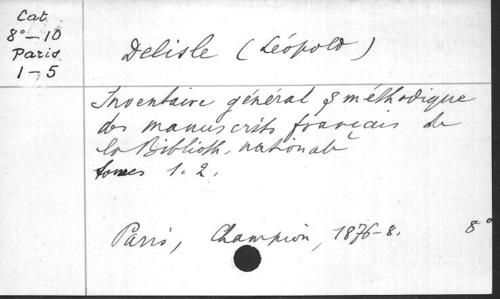 Cat
8°—10
Paris
1—5
Delisle (Léopold)
Inventaire général & méthodique
des manuscrits français de
la Biblioth. nationale
tomes 1. 2.
Paris, Champion, 1876-8. 8°